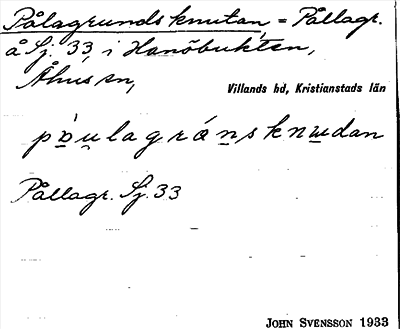 Pålagrundsknutan, = Pållagr.
å Sj. 33, i Hanöbukten,
Åhus sn,
Villands hd, Kristianstads län
påu̯lagrånsknudan
Pållagr. Sj. 33
JOHN SVENSSON 1933